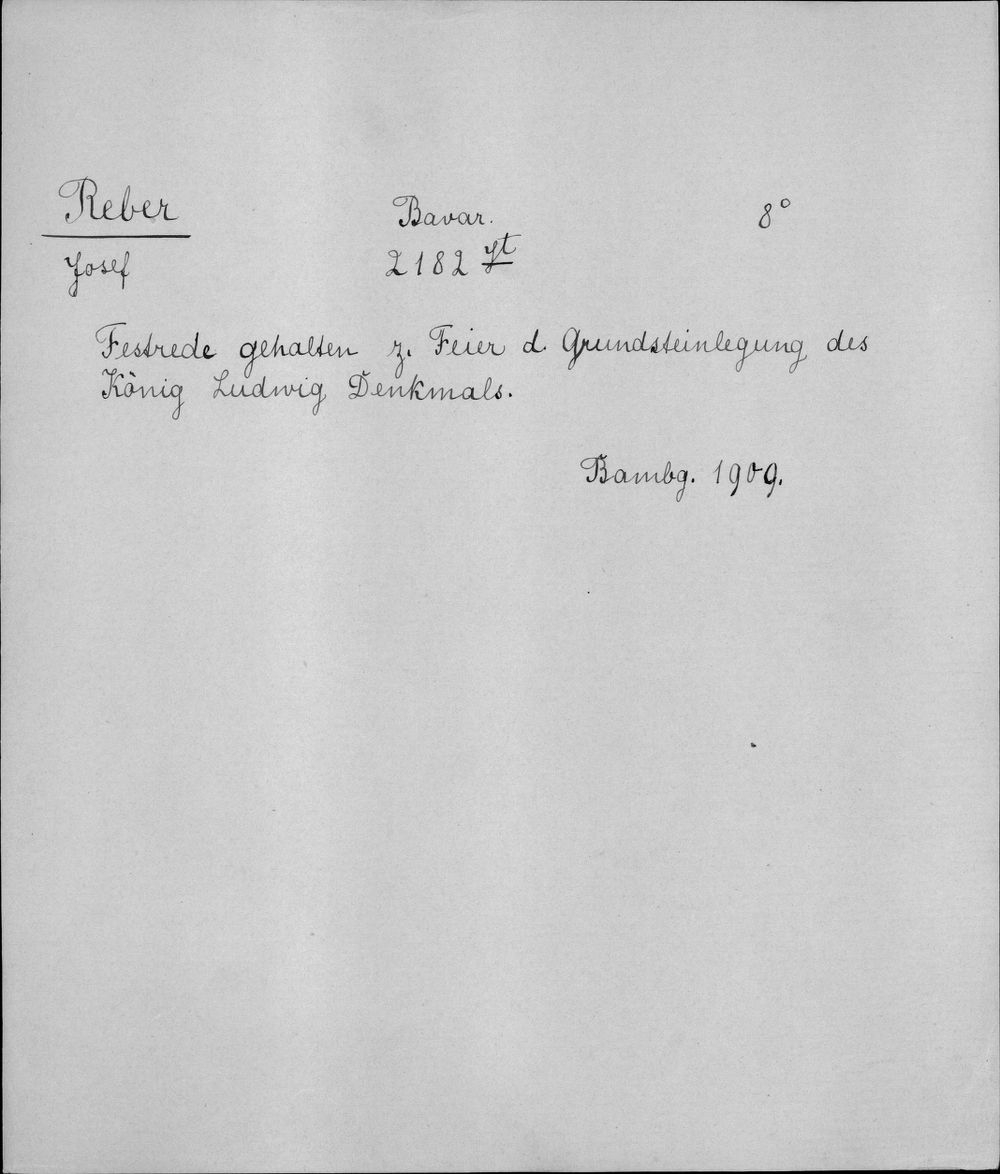 Reber Bavar. 8°
Josef 2182 yt
Festrede gehalten z. Feier d. Grundsteinlegung des
König Ludwig Denkmals.
Bambg. 1909.